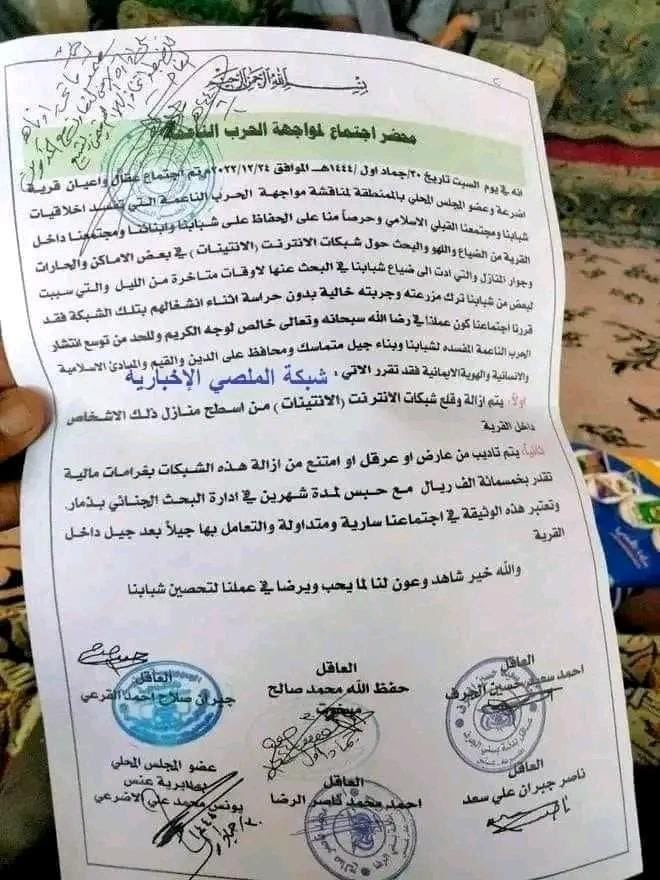 بسم الله الرحمن الرحيم
محضر اجتماع لمواجهة الحرب الناعمة
انه في يوم السبت تاريخ ٣٠/جماد اول /١٤٤٤هـ الموافق ٢٠٢٢/١٢/٢٤م تم اجتماع عقال واعيان قرية
اضرعة وعضو المجلس المحلي بالمنطقة لمناقشة مواجهة الحرب الناعمة التي تفسد اخلاقيات
شبابنا ومجتمعنا القبلي الاسلامي وحرصاً منا على الحفاظ على شبابنا وابنائنا ومجتمعنا داخل
القرية من الضياع واللهو والبحث حول شبكات الانترنت (الانتينات) في بعض الاماكن والحارات
وجوار المنازل والتي ادت الى ضياع شبابنا في البحث عنها لاوقات متاخرة من الليل والتي سببت
لبعض من شبابنا ترك مزرعته وجربته خالية بدون حراسة اثناء انشغالهم بتلك الشبكة فقد
قررنا اجتماعنا كون عملنا في رضا الله سبحانه وتعالى خالص لوجه الكريم وللحد من توسع انتشار
الحرب الناعمة المفسده لشبابنا وبناء جيل متماسك ومحافظ على الدين والقيم والمبادئ الاسلامية
والانسانية والهوية الايمانية فقد تقرر الاتي :
شبكة الملصي الإخبارية
اولاً: يتم ازالة وقلع شبكات الانترنت (الانتينات) من اسطح منازل ذلك الاشخاص
داخل القرية
ثانيا: يتم تاديب من عارض او عرقل او امتنع من ازالة هذه الشبكات بغرامات مالية
تقدر بخمسمائة الف ريال مع حبس لمدة شهرين في ادارة البحث الجنائي بذمار
وتعتبر هذه الوثيقة في اجتماعنا سارية ومتداولة والتعامل بها جيلاً بعد جيل داخل
القرية
والله خير شاهد وعون لنا لما يحب ويرضا في عملنا لتحصين شبابنا
العاقل
احمد سعيد حسين الجرف
العاقل
حفظ الله محمد صالح
العاقل
جبران صلاح احمد القرعي
العاقل
ناصر جبران علي سعد
العاقل
احمد محمد ناصر الرضا
عضو المجلس المحلي
بمديرية عنس
يونس محمد علي الاضرعي